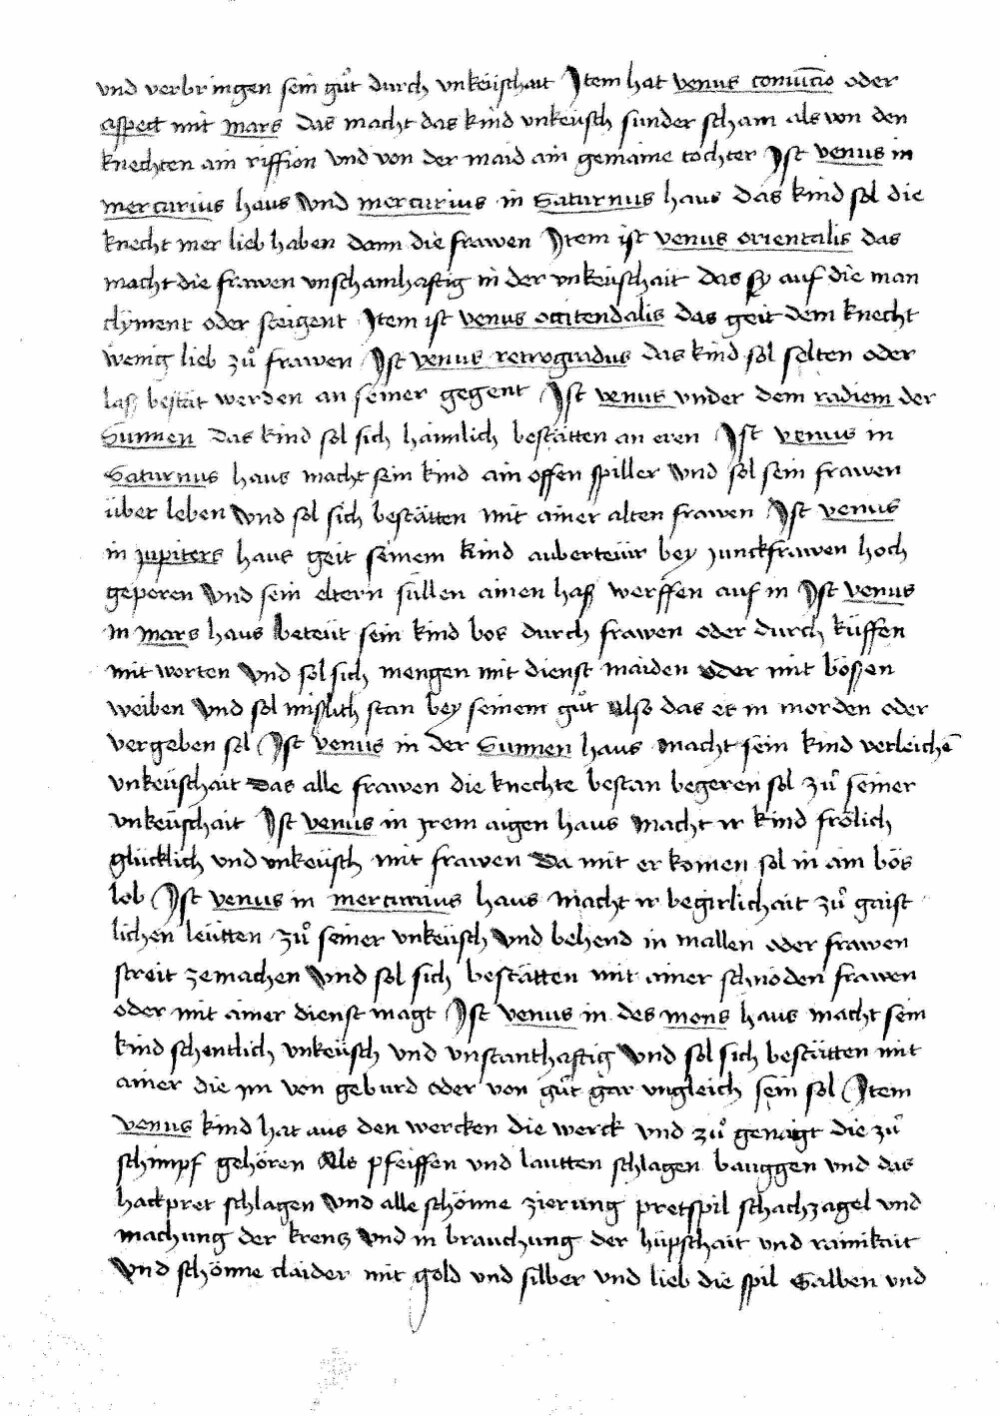 vnd verbringen sein gůt durch vnkeüschait Item hat venus coniu̅ctio oder
aspect mit mars das macht das kind vnkeüsch sunder scham als von den
knechten ain riffion vnd von der maid ain gemaine tochter Ist venus in
mercurius haus vnd mercurius in Saturnus haus das kind sol die
knecht mer lieb haben denn die frawen Item ist venus orientalis das
macht die frawen vnschamhaftig in der vnkeüschait das sy auf die man
clyment oder steigent Item ist venus occitendalis das geit dem knecht
wenig lieb zů frawen Ist venus retrogradus das kind sol selten oder
lasß bestät werden an seiner gegent Ist venus vnder dem radiem der
Sunnen das kind sol sich hämlich bestätten an eren Ist venus in
Saturnus haus macht sein kind ain offen spiller vnd sol sein frawen
über leben vnd sol sich bestätten mit ainer alten frawen Ist venus
in jupiters haus geit seinem kind auberteür bey junckfrawen hoch
geperen vnd sein eltern süllen ainen haß werffen auf in Ist venus
in mars haus beteüt sein kind bos durch frawen oder durch küssen
mit worten vnd sol sich mengen mit dienst maiden oder mit bössen
weiben vnd sol mislich stan bey seinem gůt also das er in morden oder
vergeben sol Ist venus in der Sunnen haus macht sein kind verleiche̅
vnkeüschait das alle frawen die knechte bestan begeren sol zů seiner
vnkeüschait Ist venus in irem aigen haus macht ir kind frölich
glücklich vnd vnkeüsch mit frawen da mit er komen sol in ain bös
lob Ist venus in mercurius haus macht ir begirlichait zů gaist
lichen leütten zů seiner vnkeüsch vnd behend in mallen oder frawen
streit zemachen vnd sol sich bestätten mit ainer schnöden frawen
oder mit ainer dienst magt Ist venus in des mons haus macht sein
kind schentlich vnkeüsch vnd vnstanthaftig vnd sol sich bestätten mit
ainer die im von geburd oder von gůt gar vngleich sein sol Item
venus kind hat aus den wercken die werck vnd zů genaigt die zů
schimpf gehören Als pfeiffen vnd lautten schlagen bauggen vnd das
hackpret schlagen vnd alle schönne zierung pretspil schachzagel vnd
machung der krentz vnd in brauchung der hüpschait vnd rainikait
vnd schönne claider mit gold vnd silber vnd lieb die spil Salben vnd